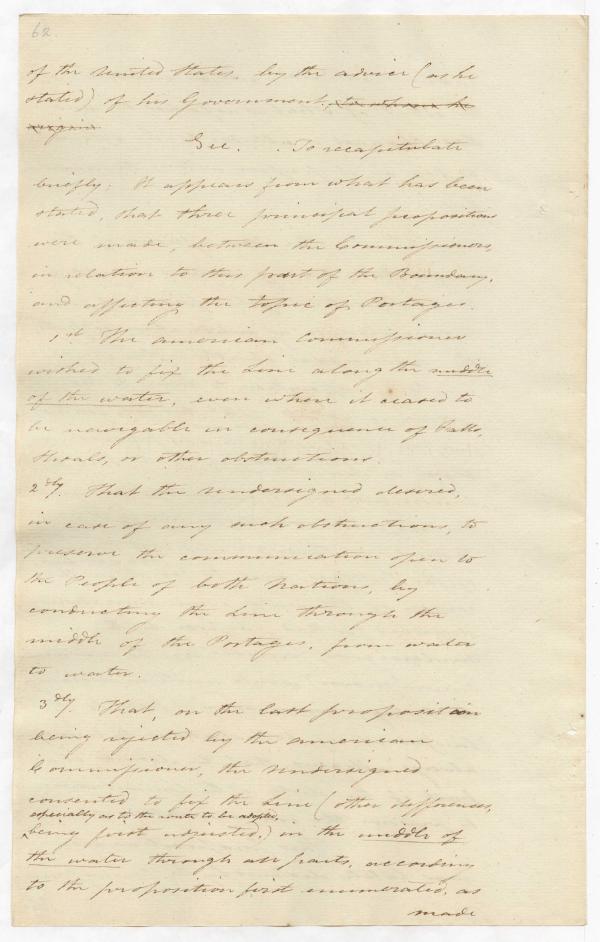 62.
of the United States, by the advice (as he
stated) of his Government, to whom he
Sec. . To recapitulate
briefly: It appears from what has been
stated, that three principal propositions
were made, between the Commissioners,
in relation to this part of the Boundary,
and affecting the topic of Portages.
1st The American Commissioner
wished to fix the Line along the middle
of the water, even where it ceased to
be navigable in consequence of Falls,
Shoals, or other obstructions.
2dly. That the Undersigned desired,
in case of any such obstructions, to
preserve the communication open to
the People of both Nations, by
conducting the Line through the
middle of the Portages, from water
to water.
3dly. That, on the last proposition
being rejected by the American
Commissioner, the Undersigned
consented to fix the Line (other differences,
especially as to the route to be adopted,
being first adjusted,) in the middle of
the water through all parts, according
to the proposition first enumerated, as
made